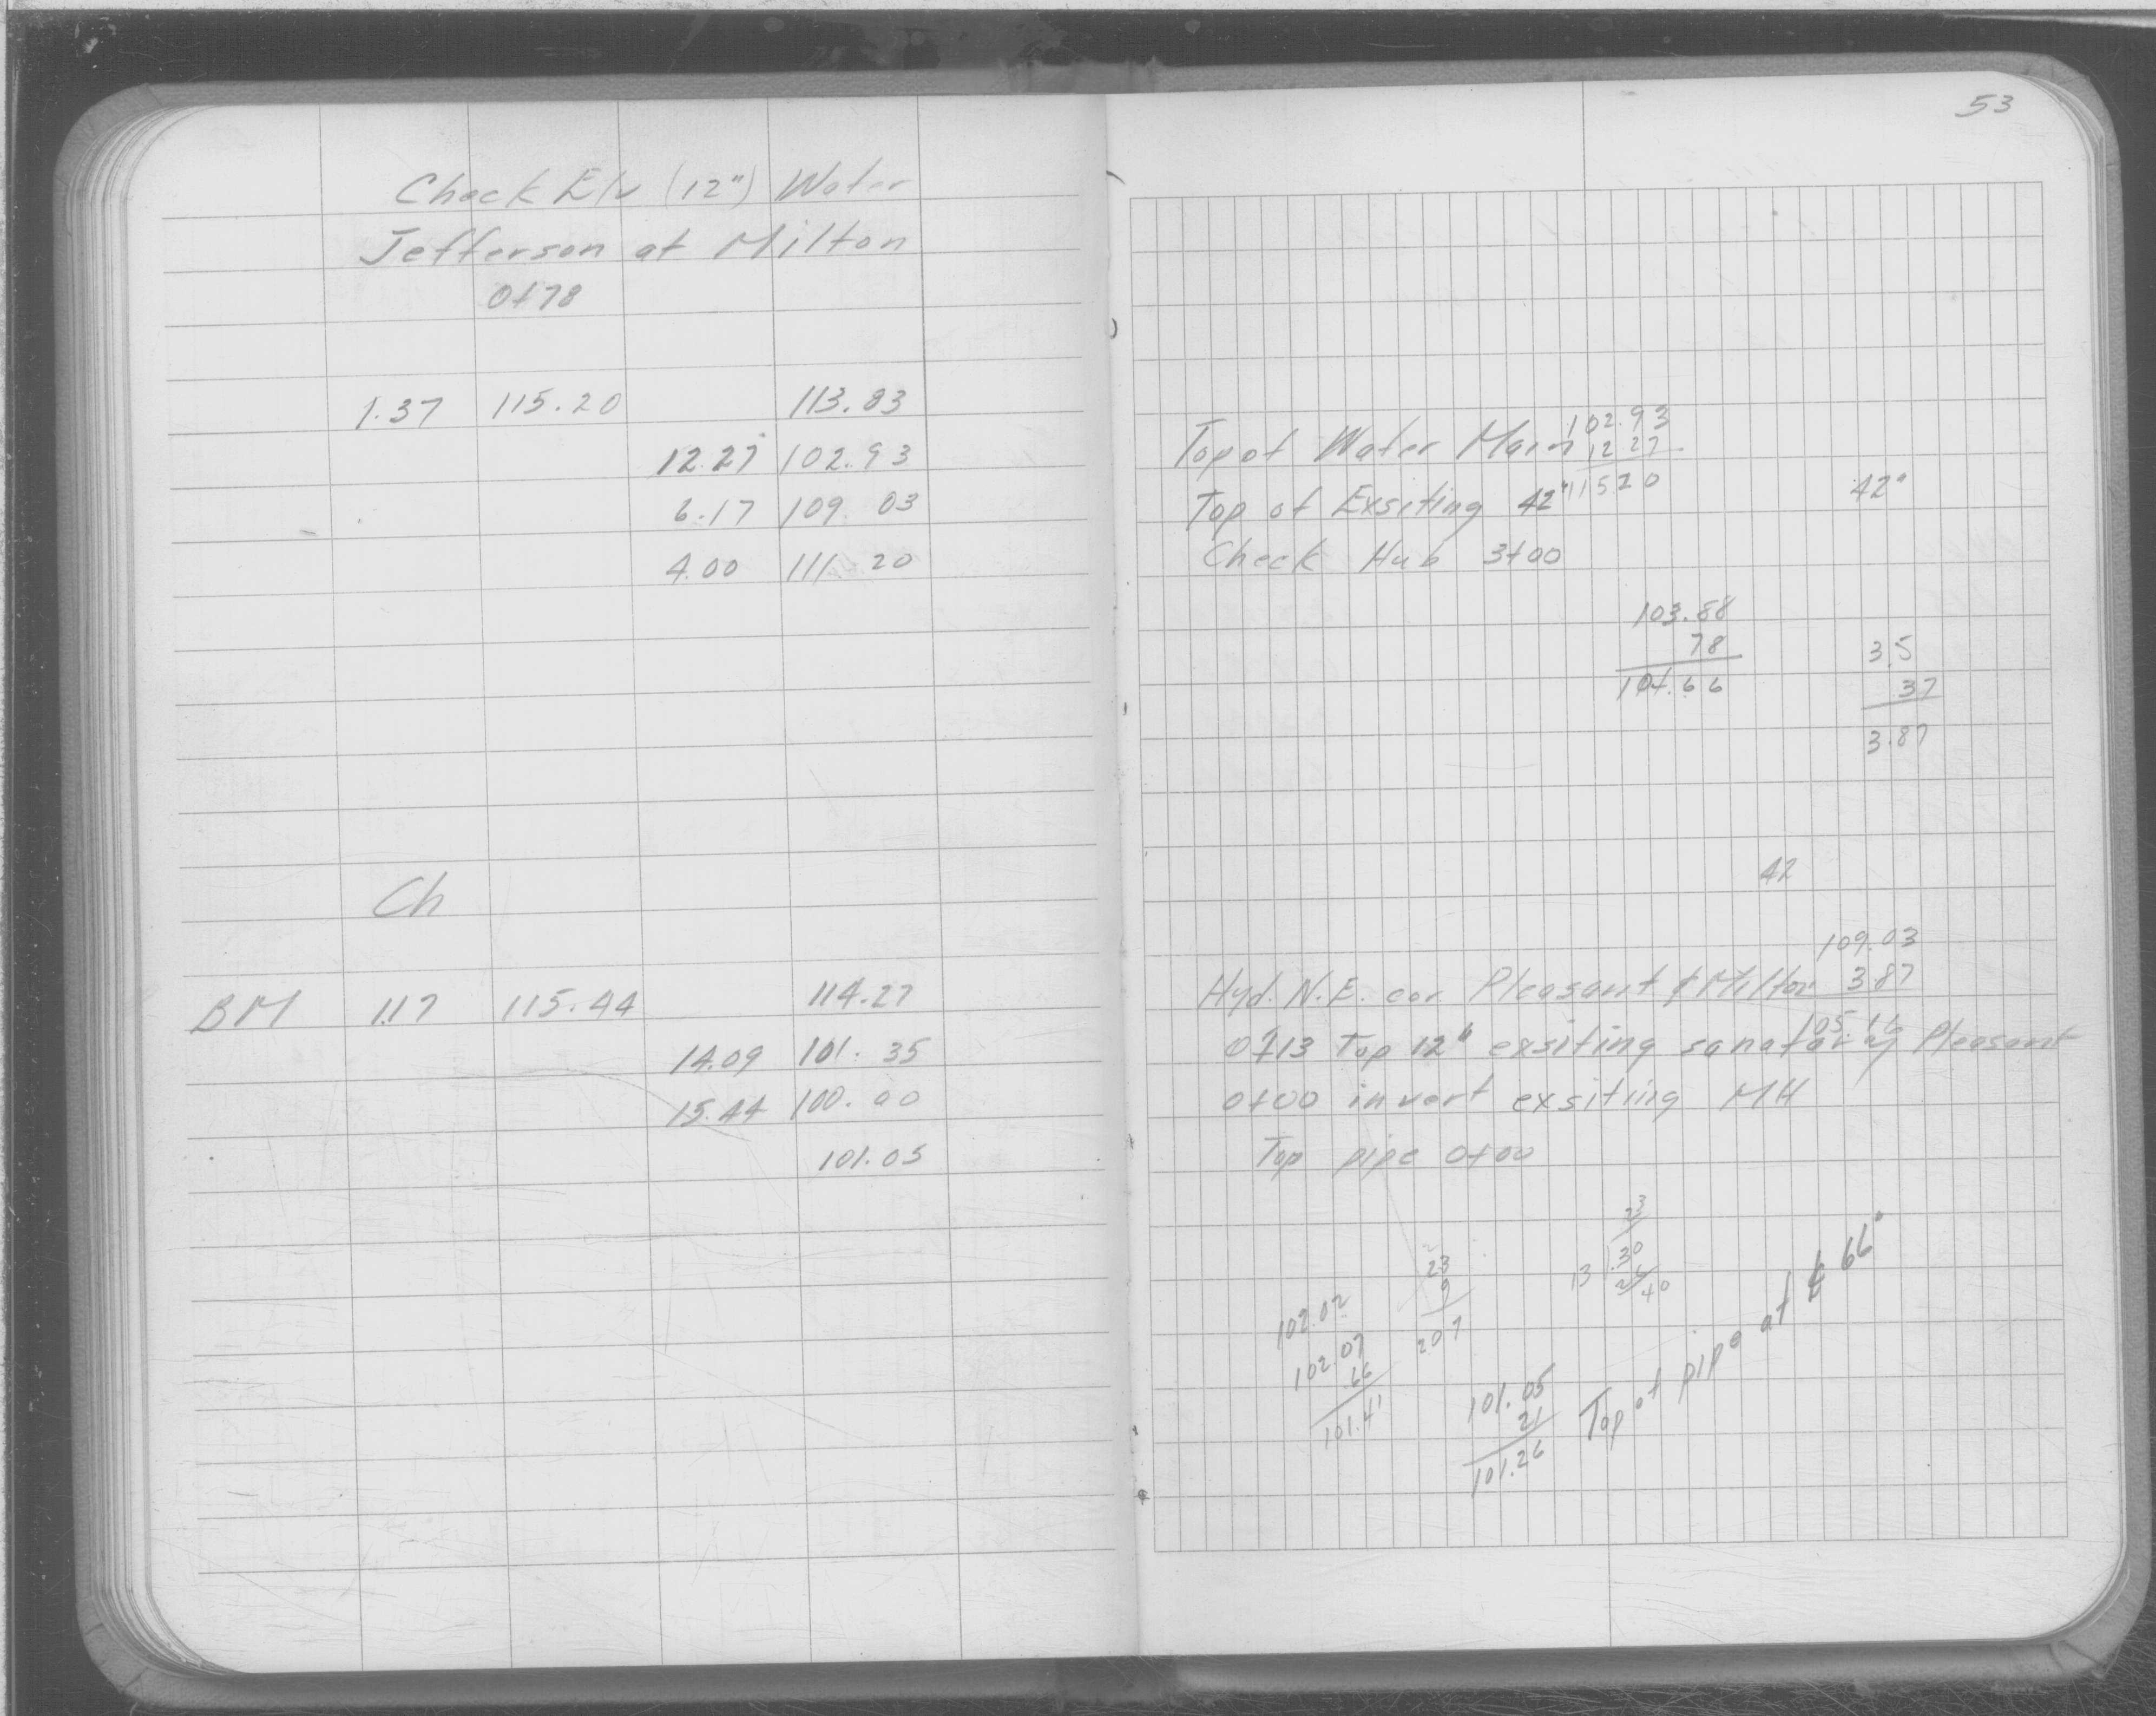 Check Elv (12") Water
Jefferson at Milton
0+78
1.37 115.20 113.83
12.27 102.93
6.17 109.03
4.00 111.20
Ch
BM 1.17 115.44 114.27
14.09 101.35
15.44 100.00
101.05
53
Top of Water Main
102.93
12.27
115.20
Top of Exsiting 42"
42"
Check Hub 3+00
103.88
78
104.66
3.5
37
3.87
42
109.03
3.87
105.16
Hyd. N.E. cor Pleasant & Milton
0+13 Top 12" exsiting sanatary Pleasant
0+00 invert exsiting MH
Top pipe 0+00
23
9
207
23
13 .30
26
40
102.02
102.07
.66
101.41
101.05
21
101.26
Top of pipe at ₵ 66"